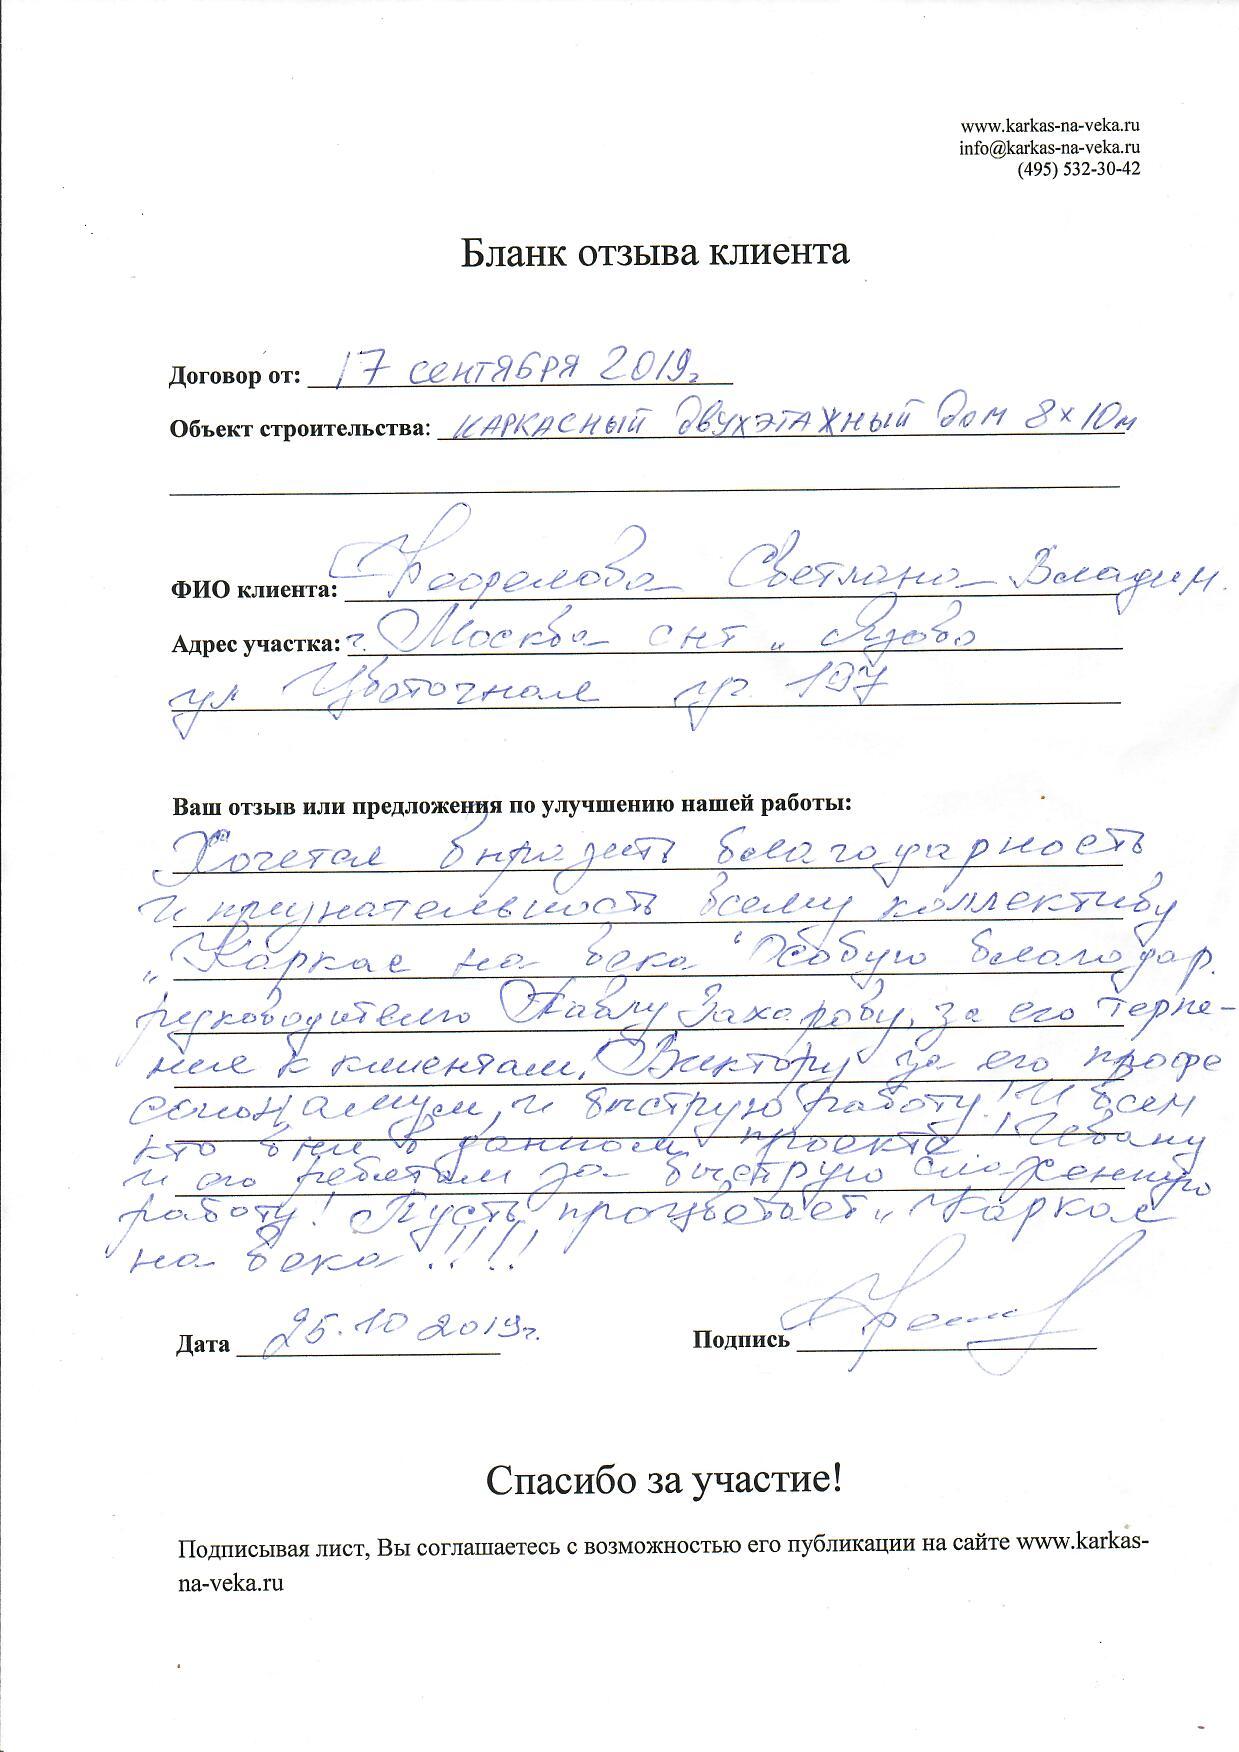 www.karkas-na-veka.ru
info@karkas-na-veka.ru
(495) 532-30-42
Бланк отзыва клиента
Договор от: 17 сентября 2019г
Объект строительства: каркасный двухэтажный дом 8х10м
ФИО клиента: Светлана Владим.
Адрес участка: г. Москва снт „ Язово
ул Цветочная уч. 197
Ваш отзыв или предложения по улучшению нашей работы:
Хочется выразить благодарность
и признательность всему коллективу
„Каркас на века“ Особую благодар.
руководителю Павлу Захарову, за его терпе-
ние к клиентам, Виктору за его профе
и быструю работу! И всем
кто в данном проекте!
и его ребятам за быструю слаженную
работу! Пусть процветает „Каркас
на века!!!!
Дата 25.10 2019г.
Подпись
Спасибо за участие!
Подписывая лист, Вы соглашаетесь с возможностью его публикации на сайте www.karkas-
na-veka.ru